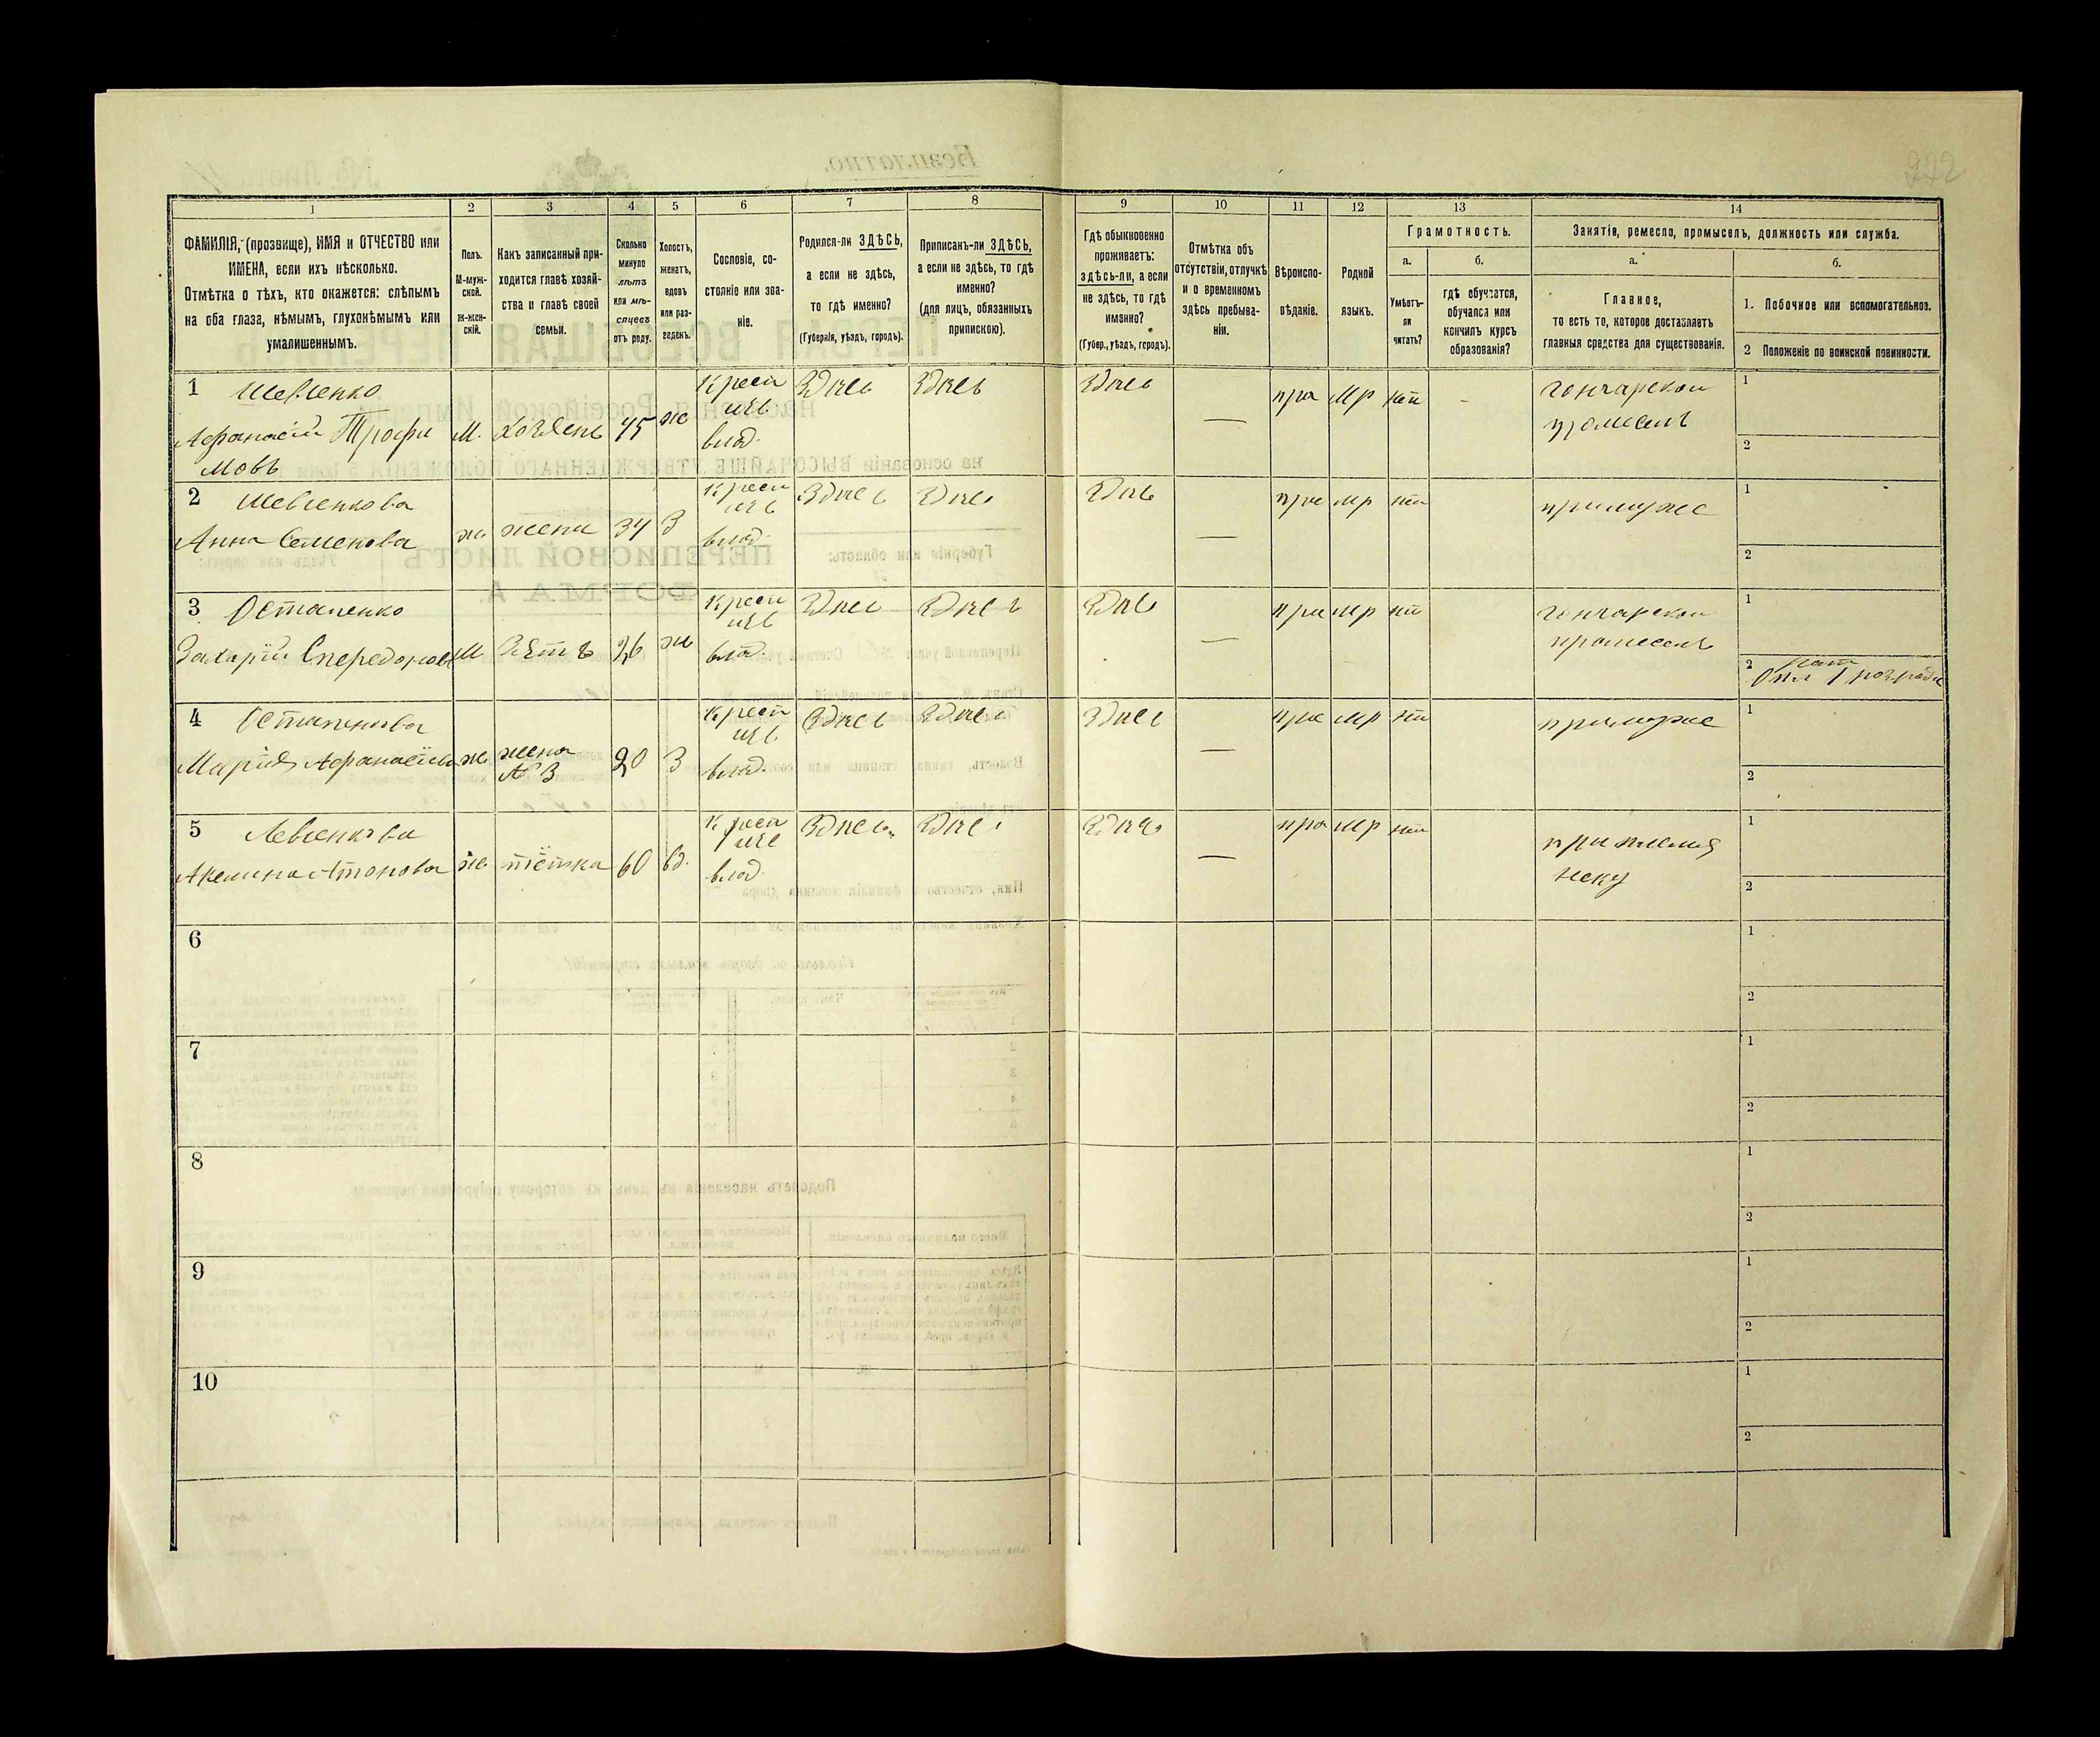 272
1 2 3 4 5 6 7 8 9 10 11 12 13 14
ФАМИЛІЯ, (прозвище), ИМЯ и ОТЧЕСТВО или
ИМЕНА, если ихъ нѣсколько.
Отмѣтка о тѣхъ, кто окажется: слѣпымъ
на оба глаза, нѣмымъ, глухонѣмымъ или
умалишеннымъ.
Полъ.
М-муж-
ской.
Ж-жен-
скій.
Какъ записанный при-
ходится главѣ хозяй-
ства и главѣ своей
семьи.
Сколько
минуло
лѣтъ
или мѣ-
сяцевъ
отъ роду.
Холостъ,
женатъ,
вдовъ
или раз-
веденъ.
Сословіе, со-
стояніе или зва-
ніе.
Родился-ли ЗДѢСЬ,
а если не здѣсь,
то гдѣ именно?
(Губернія, уѣздъ, городъ).
Приписанъ-ли ЗДѢСЬ,
а если не здѣсь, то гдѣ
именно?
(для лицъ, обязанныхъ
припискою).
Гдѣ обыкновенно
проживаетъ:
здѣсь-ли, а если
не здѣсь, то гдѣ
именно?
(Губер., уѣздъ, городъ).
Отмѣтка объ
отсутствіи, отлучкѣ
и о временномъ
здѣсь пребыва-
ніи.
Вѣроиспо-
вѣданіе.
Родной
языкъ.
Грамотность.
а.
Умѣетъ-
ли
читать?
б.
гдѣ обучается,
обучался или
кончилъ курсъ
образованія?
Занятіе, ремесло, промыселъ, должность или служба.
а.
Главное,
то есть то, которое доставляетъ
главныя средства для существованія.
б.
1. Побочное или вспомогательное.
2 Положеніе по воинской повинности.
1 Шевченко
Афанасій Трофи
мовъ
М. хозяенъ 45 же
Крест
изъ
влад.
Здпсь Здпсь Здпсь — пра Мр нт -
гончарской
промеселъ
1
2
2 Шевченкова
Анна Семенова
ж жена 34 З
Крест
изъ
влад.
Здпсь Здпсь Здпсь — пра мр нт
примуже
1
2
3 Остапенко
Захарій Спередонов
М Зять 26 же
Крест
изъ
влад.
Здпсь Здпсь Здпсь — пра мр нт
гончарской
промеселъ
1
2
Опл 1 розряда
4 Остапенкова
Марія Афанасіева
ж
жена
№ 3
20 З
Крест
изъ
влад.
Здпсь Здпсь Здпсь — пра мр нт
примуже
1
2
5 Левченкова
Акелина Антонова
ж тіётка 60 вд.
Крест
изъ
влад.
Здпсь Здпсь Здпсь — пра мр нт
при племя
неку
1
2
6
1
2
7
1
2
8
1
2
9
1
2
10
1
2